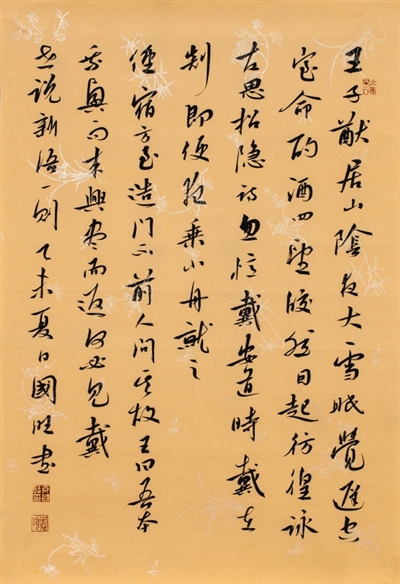 王子猷居山陰夜大雪眠覺開
室命酌酒四望皎然因起彷徨詠
左思招隱詩忽憶戴安道時戴在
剡即便夜乘小舟就之
經宿方至造門不前人問其故王曰吾本
乘興而來興盡而返何必見戴
世說新語一則乙未夏日國旺書